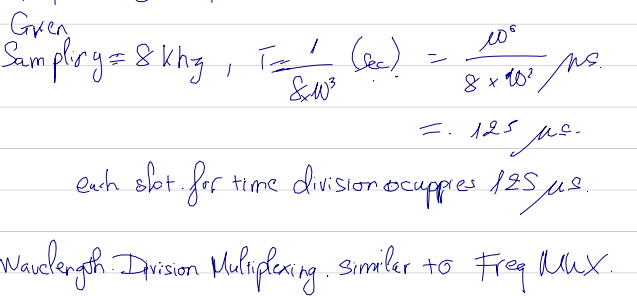 Given
Sampling = 8 khz , T = 1 / 8x10³ (sec) = 10⁶ / 8 x 10³ μs.
= . 125 μs.
each slot for time division ocuppies 125 μs.
Wavelength Division Multiplexing. Similar to Freq Mux.